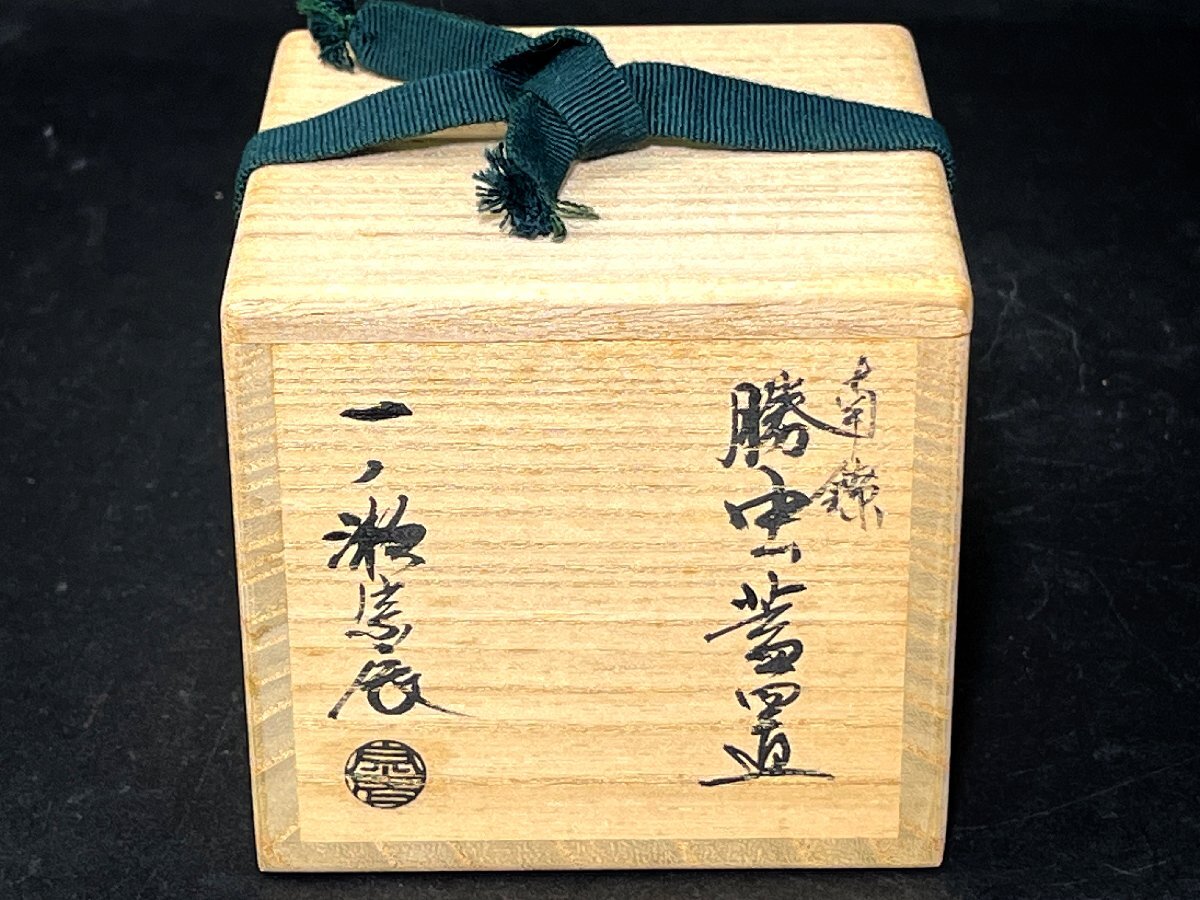 南鐐
勝虫蓋置
一ノ瀬宗辰